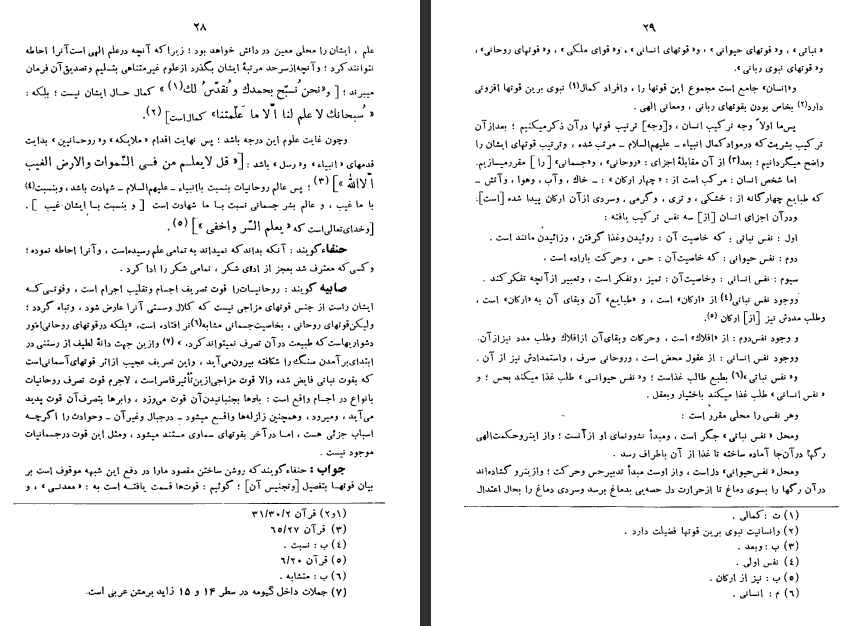 ۲۸
علم ، ایشان را محلی معین در دانش خواهد بود ؛ زیرا که آنچه در علم الهی است آنرا احاطه
نتوانند کرد ؛ و آنچه از سرحد مرتبهٔ ایشان بگذرد از علوم غیرمتناهی بتسلیم و تصدیق آن فرمان
میبرند ؛ [ و «نحن نُسبّح بحمدك و نُقدّس لك(۱)» کمال حال ایشان نیست ؛ بلکه :
« سُبحانك لا علم لنا الّا ما عَلَّمتنا» کمال است] (۲).
وچون غایت علوم این درجه باشد ؛ پس نهایت اقدام « ملایکه » و «روحانیین» بدایت
قدمهای « انبیاء » و «رسل » باشد : [« قل لایعلم من فی السّموات والارض الغیب
الّا الله »] (۳) ؛ پس عالم روحانیات بنسبت باانبیاء ـ علیهم‌السلام ـ شهادت باشد ، وبنسبت(٤)
با ما غیب ، و عالم بشر جسمانی نسبت بـا ما شهادت است [ و بنسبت بـا ایشان غیب ] .
[وخدای‌تعالی است که « یعلم السّر واخفی »] (٥).
حنفاء گویند : آنکه بداند که نمیداند به تمامی علم رسیده‌است ، وآنرا احاطه نموده ؛
وکسی که معترف شد بعجز از ادای شکر ، تمامی شکر را ادا کرد .
صابیه گویند : روحانیـات را قوت تصریف اجسام وتقلیب اجرام است ، وقوتـی کـه
ایشان راست از جنس قوتهای مزاجی نیست که کلال وسستی آنرا عارض شود ، وتباه گردد ؛
ولیکن قوتهای روحانی ، بخاصیت جسمانی مشابه(٦)تر افتاده، است، «بلکه درقوتهای روحانی امور
دشواریهاست که طبیعت درآن تصرف نمیتواند کرد. » (۷) وازین جهت دانهٔ لطیف از رستنی در
ابتدای بر آمدن سنگ را شکافته بیرون می‌آید ، واین تصریف عجیب از اثر قوتهای آسمانی است
که بقوت نباتی فایض شده والا قوت مزاجی ازین تأثیر قاصر است ، لاجرم قوت تصرف روحانیات
بانواع در اجسام واقع است : بادها بجنبانیدن آن قوت می‌وزد ، وابرها بتصرف آن قوت پدید
می‌آید ، ومیرود ، وهمچنین زلزله‌ها واقـع میشود ـ درجبال وغیرآن ـ وحوادث را اگرچـه
اسباب جزئی هست ، امـا درآخر بقوتهای سماوی مستند میشود ، ومثل این قوت درجسمانیات
موجود نیست .
جواب : حنفاء گویند که روشن ساختن مقصود مارا در دفع این شبهه موقوف است بر
بیان قوتهـا بتفصیل [وتجنیس آن] ؛ گوئیم : قوت‌ها قسمت یافتـه است به : «معدنـی » ، و
(۱و۲) قرآن ۳۱/۳۰/۲
(۳) قرآن ۶۵/۲۷
(٤) ب : نسبت .
(٥) قرآن ۶/۲۰
(٦) ب : متشابه .
(۷) جملات داخل گیومه در سطر ۱۴ و ۱۵ زاید برمتن عربی است.
۲۹
« نباتی » ، و« قوتهای حیوانی » ، و« قوتهای انسانی » ، و« قوای ملکی » ، و« قوتهای روحانی» ،
و « قوتهای نبوی ربانی ».
و«انسان» جامع است مجموع این قوتها را ، وافراد کمال(۱) نبوی برین قوتها افزونی
دارد(۲) بخاص بودن بقوتهای ربانی ، ومعانی الهی .
پس‌ما اولاً وجه ترکیب انسان ، و[وجه] ترتیب قوتها درآن ذکرمیکنیم ؛ بعدازآن
ترکیب بشریت که در مواد کمال انبیاء ـ علیهم‌السلام ـ مرتب شده ، وترتیب قوتهای ایشان را
واضح میگردانیم ؛ بعد(۳) از آن مقابلهٔ اجزای : «روحانی» ، و«جسمانی» [را ] مقررمیسازیم.
اما شخص انسان : مرکب است از : « چهار ارکان» : ـ خاك ، وآب ، وهوا ، وآتش ـ
که طبایع چهارگانه از : خشکی ، و تری ، وگرمی ، وسردی از آن ارکان پیدا شده [است]:
ودرآن اجزای انسان [از] سه نفس ترکیب یافته :
اول : نفس نباتی : که خاصیت آن : روئیدن وغذا گرفتن ، وزائیدن مانند است .
دوم : نفس حیوانی : که خاصیت آن : حس ، وحرکت باراده است .
سیوم : نفس انسانی : وخاصیت آن : تمیز ، وتفکر است ، وتعبیر از آنچه تفکر کند .
ووجود نفس نباتی(٤) از «ارکان» است ، و «طبایع» آن وبقای آن به «ارکان» است ،
وطلب مددش نیز [از] ارکان (٥).
و وجود نفس‌دوم : از «افلاك» است ، وحرکات وبقای‌آن از افلاك وطلب مدد نیز ازآن.
ووجود نفس انسانی : از عقول محض است ، وروحانی صرف ، واستمدادش نیز از آن .
و« نفس نباتی »(٦) بطبع طالب غذاست ؛ و« نفس حیوانـی » طلب غذا میکند بحس ؛ و
« نفس انسانی » طلب غذا میکند باختیار وبعقل .
وهر نفسی را محلی مقرر است :
ومحل « نفس نباتی » جگر است ، ومبدأ نشوونمای او ازآنست ؛ واز اینرو حکمت الهی
رگها درآن‌جا آماده ساخته تا غذا از آن باطراف رسد .
ومحل «نفس‌حیوانی» دل‌است ، و از اوست مبدأ تدبیر حس وحرکت ؛ وازینرو گشاده‌اند
درآن رگها را بسوی دماغ تا ازحرارت دل حصه‌یی بدماغ برسد وسردی دماغ را بحال اعتدال
(۱) ت : کمالی .
(۲) وانسانیت نبوی برین قوتها فضیلت دارد .
(۳) ب : وبعد .
(٤) نفس اولی .
(٥) ب : نیز از ارکان .
(٦) م : انسانی .